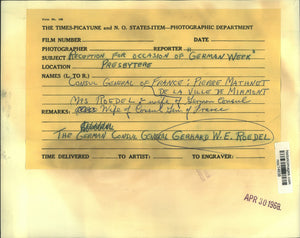 THE TIMES-PICAYUNE and N. O. STATES-ITEM—PHOTOGRAPHIC DEPARTMENT
FILM NUMBER DATE
PHOTOGRAPHER REPORTER
SUBJECT RECEPTION FOR OCCASION OF GERMAN WEEK"
LOCATION PRESBYTERE
NAMES (L. TO R.)
CONSUL GENERAL OF FRANCE: PIERRE
DE LA VILLE DE
MRS ROEDEL wife of German Consul
REMARKS: Wife of Consul Gen of France
THE GERMAN CONSUL GENERAL GERHARD W. E. ROEDEL
TIME DELIVERED TO ARTIST: TO ENGRAVER:
APR 30 1968